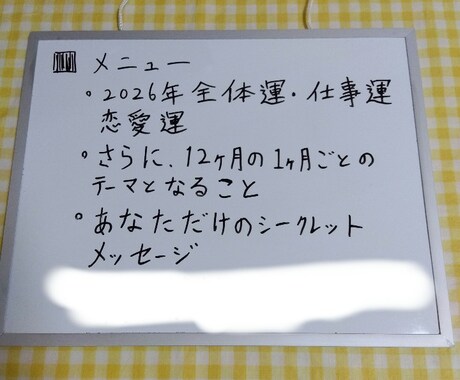 メニュー
。2026年全体運・仕事運
恋愛運
。さらに、12ヶ月の1ヶ月ごとの
テーマとなること
。あなただけのシークレット
メッセージ